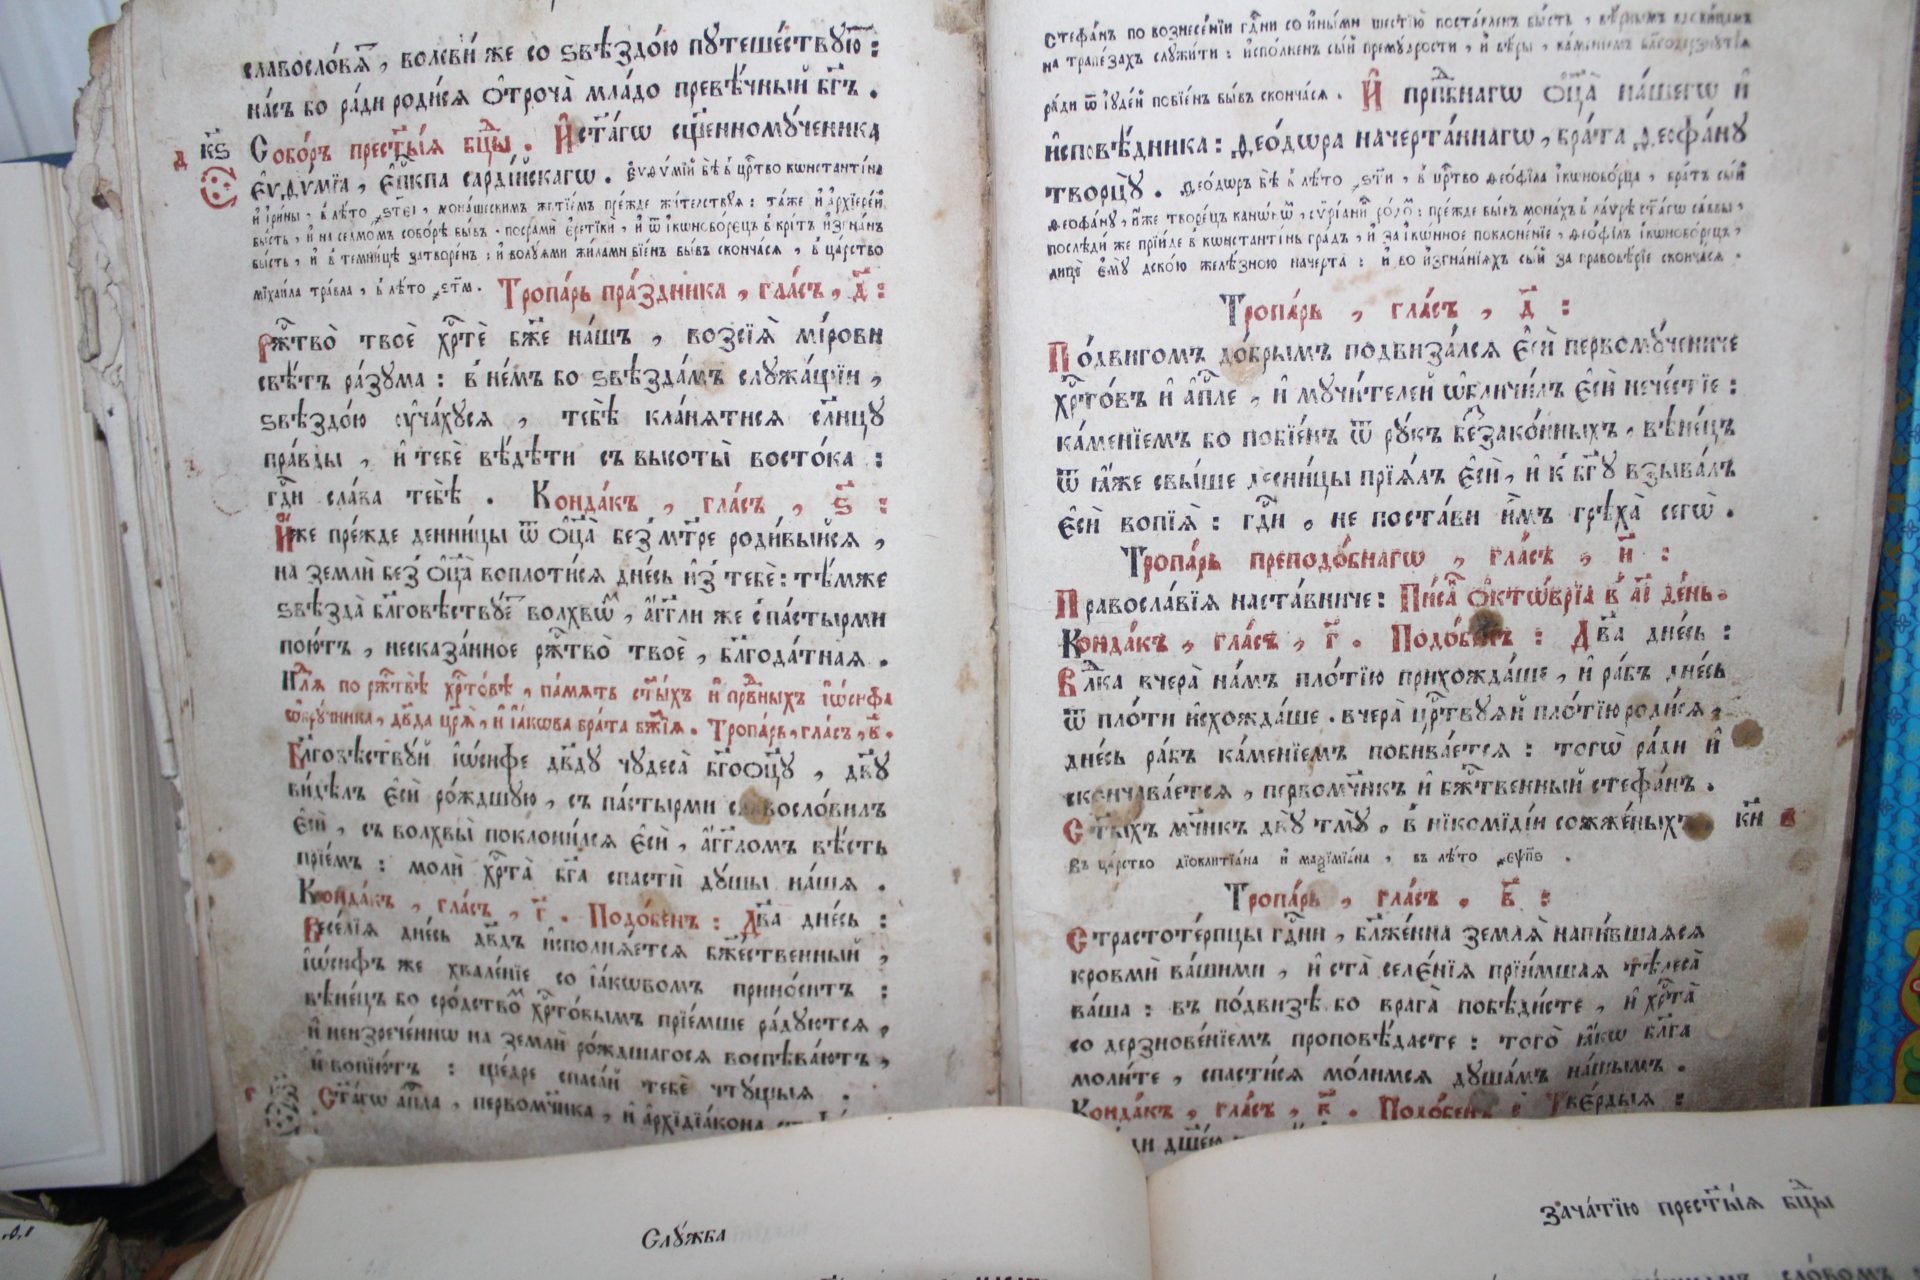 славосло́вѧ҃т , волсви́ же со ѕвѣздо́ю пꙋтеше́ствꙋю҃т :
на́съ бо ра́ди роди́сѧ ѻ҆троча̀ мла́до превѣ́чный бг҃ъ .
д к҃ѕ Собо́ръ прест҃ы́ѧ бц҃ы . И҆ ст҃а́гѡ сщ҃енномꙋ́ченика
Є҆ѵѳѵ́мїа , є҆пⷭ҇кпа сардїйскагѡ . Є҆ѵѳѵ́мїй бѣ̀ в цр҃тво кѡнстанті́на
и҆ і҆ри́ны , в лѣ́то , мона́шескимъ житїе́мъ пре́жде жи́телствꙋѧ : та́же и҆ а҆рхїере́й
бы́сть , и҆ на седмо́мъ собо́рѣ бы́въ . посрами́ є҆ретїки̑ , и҆ ѿ і҆конобо́рецъ в кри́тъ и҆згна́нъ
бы́сть , и҆ в темни́цѣ затворе́нъ : и҆ волꙋ́ями жи́лами бїе́нъ бы́въ сконча́сѧ , в ца́рство
мїхаи́ла тра́вла , в лѣ́то ҂ѕт҃м . Тропа́рь пра́здника , гла́съ , д҃ :
Рж҃тво̀ твоѐ хрⷭ҇тѐ бж҃е на́шъ , возсїѧ̀ мі́рови
свѣ́тъ ра́зꙋма : в не́мъ бо ѕвѣзда́мъ слꙋжа́щїи ,
ѕвѣздо́ю ᲂу҆ча́хꙋсѧ , тебѣ̀ кла́нѧтисѧ сл҃нцꙋ
пра́вды , и҆ тебѐ вѣ́дѣти съ высоты̀ восто́ка :
гдⷭ҇и сла́ва тебѣ̀ . Конда́къ , гла́съ , ѕ҃ :
И҆́же пре́жде денни́цы ѿ ѻ҆ц҃а̀ без мт҃ре роди́выйсѧ ,
на землѝ без ѻ҆ц҃а̀ воплоти́сѧ дне́сь и҆з тебѐ : тѣ́мже
ѕвѣзда̀ бл҃говѣствꙋ́е҃т волхвѡ́м , а҆́гг҃ли же с па́стырми
пою́тъ , несказа́нное рж҃тво̀ твоѐ , бл҃года́тнаѧ .
Нⷣлѧ по рж҃твѣ̀ хрⷭ҇то́вѣ , па́мѧть ст҃ы́хъ и҆ првⷣныхъ і҆ѡ́сифа
ѡ҆брꙋ́чника , дв҃да цр҃ѧ̀ , и҆ і҆а́кѡва бра́та бж҃їѧ . Тропа́рь , гла́съ , в҃ .
Бл҃говѣ́ствꙋй і҆ѡ́сифе дв҃дꙋ чꙋдеса̀ бг҃ооц҃ꙋ̀ , дв҃ꙋ
ви́дѣлъ є҆сѝ ро́ждшꙋю , съ па́стырми славосло́вилъ
є҆сѝ , съ волхвы̀ поклони́лсѧ є҆сѝ , а҆́гг҃ломъ вѣ́сть
прїе́мъ : молѝ хрⷭ҇та̀ бг҃а спастѝ дꙋ́шы на́шѧ .
Конда́къ , гла́съ , г҃ . Подо́бенъ : Дв҃а дне́сь :
Весе́лїѧ дне́сь дв҃дъ и҆сполнѧ́етсѧ бж҃е́ственный ,
і҆ѡ́сифъ же хвале́нїе со і҆а́кѡвомъ прино́ситъ :
вѣне́цъ бо сро́дство҃м хрⷭ҇то́вымъ прїе́мше ра́дꙋютсѧ ,
и҆ неизрече́ннѡ на землѝ ро́ждшагосѧ воспѣва́ютъ ,
и҆ вопїю́тъ : ще́дре спаса́й тебѐ чтꙋ́щыѧ .
г Ст҃а́гѡ а҆пⷭ҇ла , первомч҃нка , и҆ а҆рхїдїа́кона
Стефа́нъ по вознесе́нїи гдⷭ҇ни со и҆ны́ми шестїю̀ поста́вленъ бы́сть , вѣ́рнымъ
на трапе́захъ слꙋжи́ти : и҆спо́лненъ сы́й премꙋ́дрости , и҆ вѣ́ры , ка́менїемъ
ра́ди ѿ і҆ꙋде́й побїе́нъ бы́въ сконча́сѧ . И҆ прпⷣбнагѡ ѻ҆ц҃а̀ на́шегѡ и҆
и҆сповѣ́дника : Ѳео́дѡра начерта́ннагѡ , бра́та ѳеофа́нꙋ
творцꙋ̀ . Ѳео́дѡръ бѣ̀ в лѣ́то , в цр҃тво ѳео́фїла і҆кѡнобо́рца , бра́тъ сы́й
ѳеофа́нꙋ , и҆́же творе́цъ канѡ́нѡ҃м , сѷрїани́н ро́до҃м : пре́жде бы́въ мона́хъ в ла́врѣ ст҃а́гѡ са́ввы ,
послѣди́ же прїи́де в кѡнстанті́нь гра́дъ , и҆ за і҆кѡ́нное поклоне́нїе , ѳео́фїлъ і҆кѡнобо́рецъ ,
лицѐ є҆мꙋ̀ дско́ю желѣ́зною начерта̀ : и҆ во и҆згна́нїѧхъ сы́й за правовѣ́рїе сконча́сѧ .
Тропа́рь , гла́съ , д҃ :
По́двигомъ до́брымъ подвиза́лсѧ є҆сѝ первомꙋ́чениче
хрⷭ҇то́въ и҆ а҆пⷭ҇ле , и҆ мꙋчи́телей ѡ҆бличи́лъ є҆сѝ нече́стїе :
ка́менїемъ бо побїе́нъ ѿ рꙋ́къ беззако́нныхъ , вѣне́цъ
ѿ ꙗ҆́же свы́ше десни́цы прїѧ́лъ є҆сѝ , и҆ к бг҃ꙋ взыва́лъ
є҆сѝ вопїѧ̀ : гдⷭ҇и , не поста́ви и҆̀мъ грѣха̀ сегѡ̀ .
Тропа́рь преподо́бнагѡ , гла́съ , и҃ :
Правосла́вїѧ наста́вниче : Пи́са҃н ѻ҆ктѡ́врїа в а҃і де́нь .
Конда́къ , гла́съ , г҃ . Подо́бенъ : Дв҃а дне́сь :
Влⷣка вчера̀ на́мъ пло́тїю прихожда́ше , и҆ ра́бъ дне́сь
ѿ пло́ти и҆схожда́ше . вчера̀ црⷭ҇твꙋѧй пло́тїю роди́сѧ ,
дне́сь ра́бъ ка́менїемъ побива́етсѧ : тогѡ̀ ра́ди и҆
сконча́ваетсѧ , первомч҃нкъ и҆ бж҃твенный стефа́нъ .
Ст҃ы́хъ мч҃нкъ двꙋ̀ тмꙋ̀ . в нїкомїді́и сожже́ныхъ к҃и в
Въ ца́рство дїоклитїа́на и҆ маѯїмїа́на , въ лѣ́то .
Тропа́рь , гла́съ . в҃ :
Страстоте́рпцы гдⷭ҇ни , бл҃же́нна землѧ̀ напи́вшаѧсѧ
кровмѝ ва́шими , и҆ ст҃а̀ селе́нїѧ прїи́мшаѧ тѣлеса̀
ва́ша : въ по́двизѣ бо врага̀ побѣди́сте , и҆ хрⷭ҇та̀
со дерзнове́нїемъ проповѣ́дасте : того̀ ꙗ҆́кѡ бл҃га
моли́те , спасти́сѧ мо́лимсѧ дꙋша́мъ на́шымъ .
Конда́къ , гла́съ , в҃ . Подо́бенъ : Тве́рдыѧ :
Слꙋ́жба
Зача́тїю прест҃ы́ѧ бц҃ы
сло́вомъ